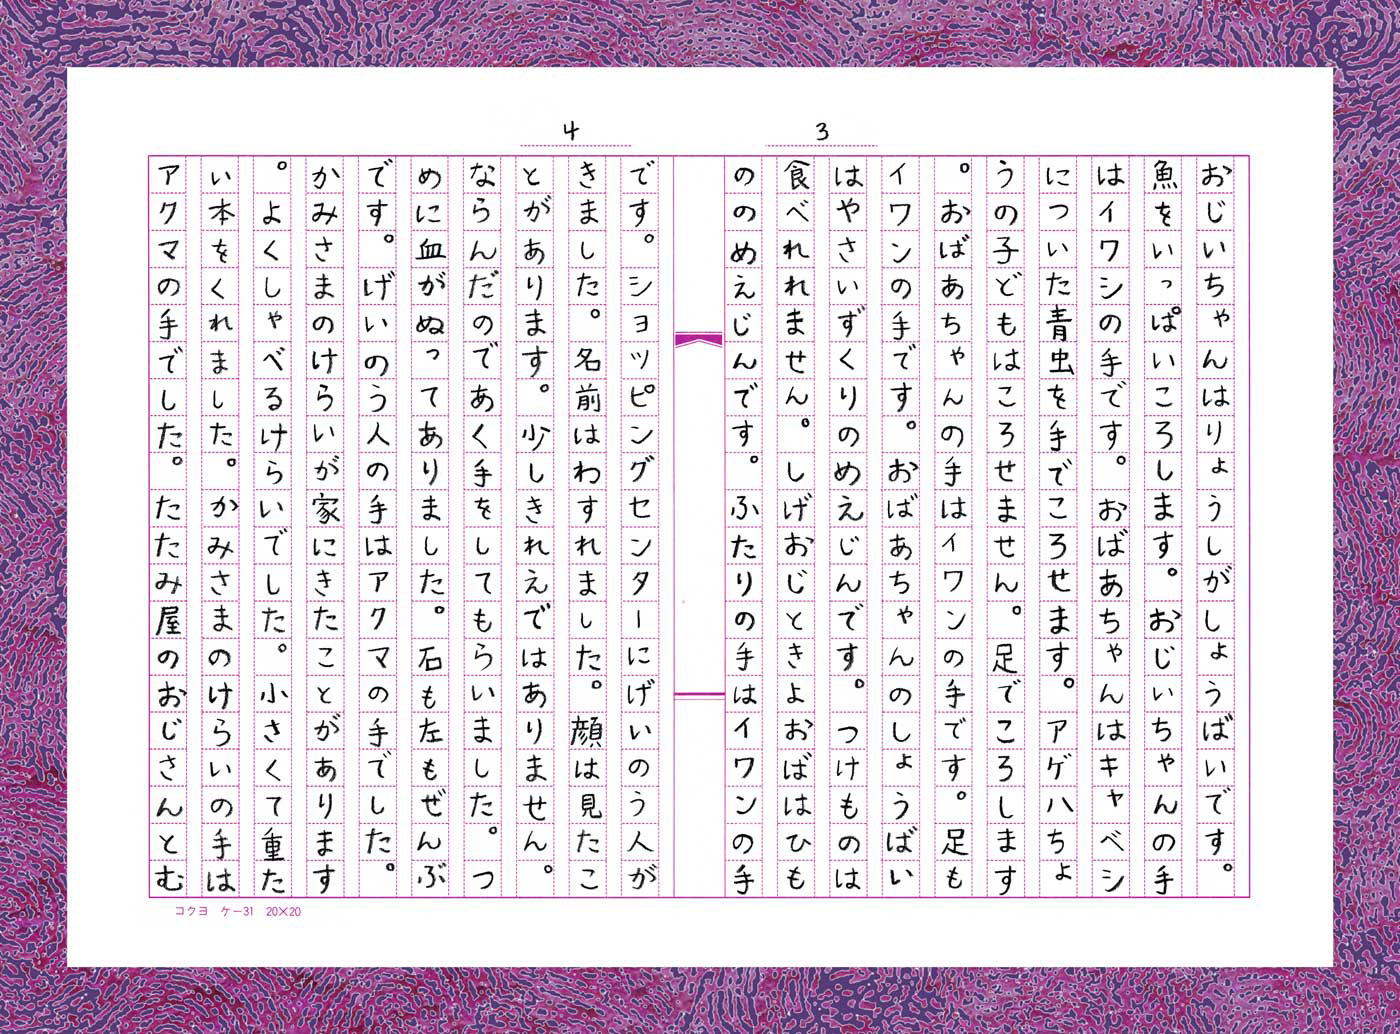 3
おじいちゃんはりょうしがしょうばいです。
魚をいっぱいころします。おじいちゃんの手
はイワシの手です。おばあちゃんはキャベシ
についた青虫を手でころせます。アゲハちょ
うの子どもはころせません。足でころします
。おばあちゃんの手はイワンの手です。足も
イワンの手です。おばあちゃんのしょうばい
はやさいずくりのめえじんです。つけものは
食べれれません。しげおじときよおばはひも
ののめえじんです。ふたりの手はイワンの手
4
です。ショッピングセンターにげいのう人が
きました。名前はわすれました。顔は見たこ
とがあります。少しきれえではありません。
ならんだのであく手をしてもらいました。つ
めに血がぬってありました。石も左もぜんぶ
です。げいのう人の手はアクマの手でした。
かみさまのけらいが家にきたことがあります
。よくしゃべるけらいでした。小さくて重た
い本をくれました。かみさまのけらいの手は
アクマの手でした。たたみ屋のおじさんとむ
コクヨ ケー31 20×20